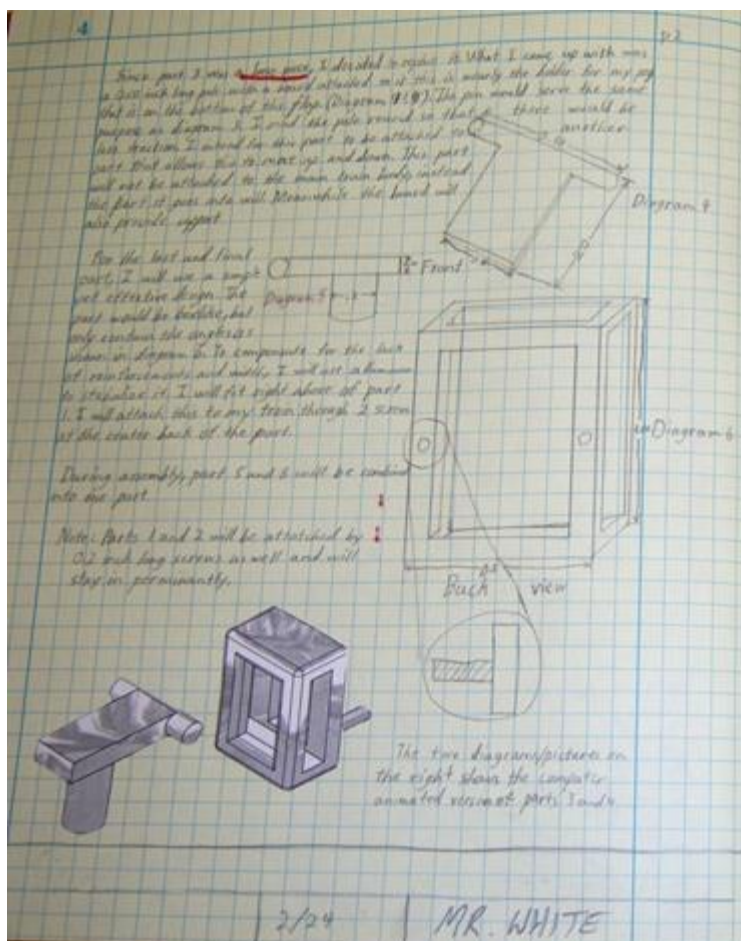 4
p.2
Since part 3 was a base piece, I decided to revise it. What I came up with was
a inch long pole with a board attached to it. this is nearly the holder for my peg
that is on the bottom of the flap (Diagram 4). The pin would serve the same
purpose as diagram 3. I made the pole round so that there would be
less friction. I intend for this part to be attached to another
part that allows this to move up and down. This part
will not be attached to the main train body, instead
the part it goes into will. Meanwhile the board will
also provide support.
Diagram 4
For the last and final
part, I will use a simple
yet effective design. The
part would be boxlike, but
only contain the angles as
shown in diagram 6. To compensate for the lack
of reinforcements and width, I will use aluminum
to stabilize it. I will fit right above of part
1. I will attach this to my train through 2 screws
at the center back of the part.
Front
Diagram 5
Diagram 6
During assembly, part 5 and 6 will be combined
into one part.
Note: Parts 1 and 2 will be attatched by
0.2 inch long screws as well and will
stay in perminantly.
Back view
The two diagrams/pictures on
the right shows the computer
animated version of parts 3 and 4
2/24
MR. WHITE